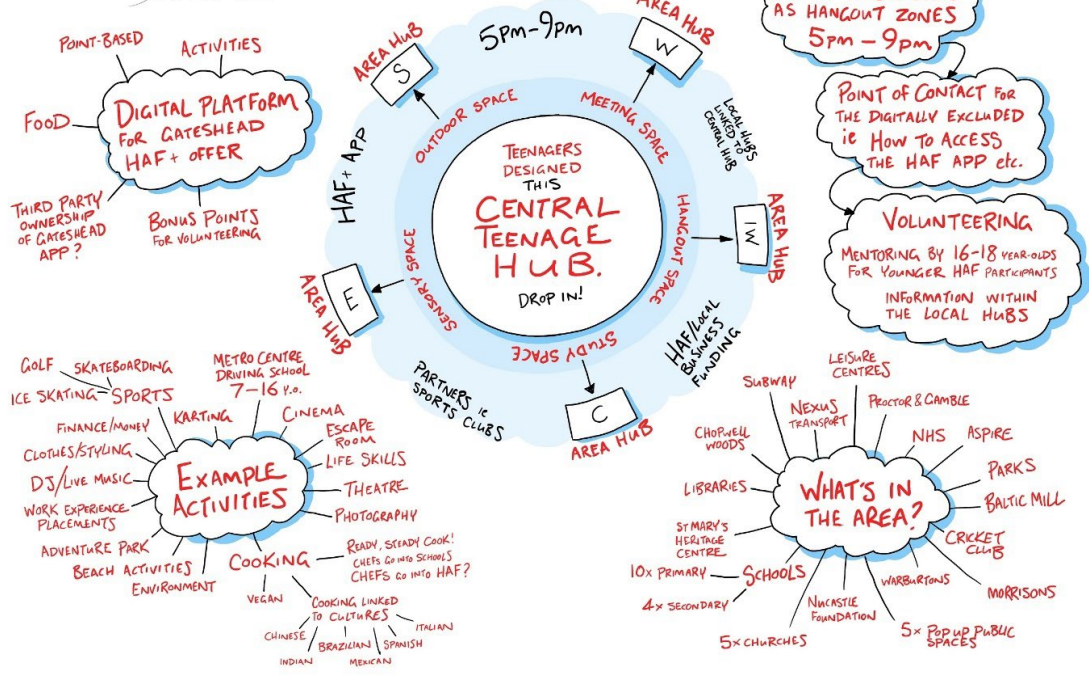 POINT-BASED
ACTIVITIES
FOOD
DIGITAL PLATFORM
FOR GATESHEAD
HAF+ OFFER
THIRD PARTY
OWNERSHIP
OF GATESHEAD
APP?
BONUS POINTS
FOR VOLUNTEERING
5PM-9PM
AREA HUB
S
AREA HUB
W
AREA HUB
IW
AREA HUB
C
AREA HUB
E
OUTDOOR SPACE
MEETING SPACE
HANGOUT SPACE
STUDY SPACE
SENSORY SPACE
HAF+ APP
LOCAL HUBS
LINKED TO
CENTRAL HUB
HAF/LOCAL
BUSINESS
FUNDING
PARTNERS ie
SPORTS CLUBS
TEENAGERS
DESIGNED
THIS
CENTRAL
TEENAGE
HUB.
DROP IN!
AS HANGOUT ZONES
5PM-9PM
POINT OF CONTACT FOR
THE DIGITALLY EXCLUDED
ie HOW TO ACCESS
THE HAF APP etc.
VOLUNTEERING
MENTORING BY 16-18 YEAR-OLDS
FOR YOUNGER HAF PARTICIPANTS
INFORMATION WITHIN
THE LOCAL HUBS
GOLF
SKATEBOARDING
ICE SKATING
SPORTS
METRO CENTRE
DRIVING SCHOOL
7-16 Y.O.
KARTING
CINEMA
FINANCE/MONEY
ESCAPE
ROOM
CLOTHES/STYLING
LIFE SKILLS
DJ/LIVE MUSIC
EXAMPLE
ACTIVITIES
THEATRE
WORK EXPERIENCE
PLACEMENTS
PHOTOGRAPHY
ADVENTURE PARK
BEACH ACTIVITIES
ENVIRONMENT
COOKING
READY, STEADY COOK!
CHEFS GO INTO SCHOOLS
CHEFS GO INTO HAF?
VEGAN
COOKING LINKED
TO CULTURES
CHINESE
INDIAN
BRAZILIAN
MEXICAN
SPANISH
ITALIAN
SUBWAY
LEISURE
CENTRES
NEXUS
TRANSPORT
PROCTOR & GAMBLE
CHOPWELL
WOODS
NHS
ASPIRE
LIBRARIES
WHAT'S IN
THE AREA?
PARKS
BALTIC MILL
ST MARY'S
HERITAGE
CENTRE
CRICKET
CLUB
10x PRIMARY
SCHOOLS
4x SECONDARY
WARBURTONS
MORRISONS
NUCASTLE
FOUNDATION
5x CHURCHES
5x POP UP PUBLIC
SPACES